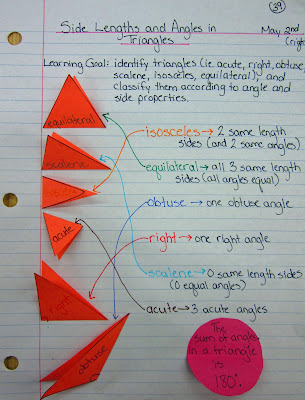 39
Side Lengths and Angles in
Triangles
May 2nd
(right
Learning Goal: identify triangles (ie. acute, right, obtuse,
scalene, isosceles, equilateral), and
classify them according to angle and
side properties.
equilateral
isosceles → 2 same length
sides (and 2 same angles)
scalene
equilateral → all 3 same length
sides (all angles equal)
obtuse → one obtuse angle
acute
right → one right angle
scalene → 0 same length sides
(0 equal angles)
right
acute → 3 acute angles
obtuse
The
sum of angles
in a triangle
is
180°.